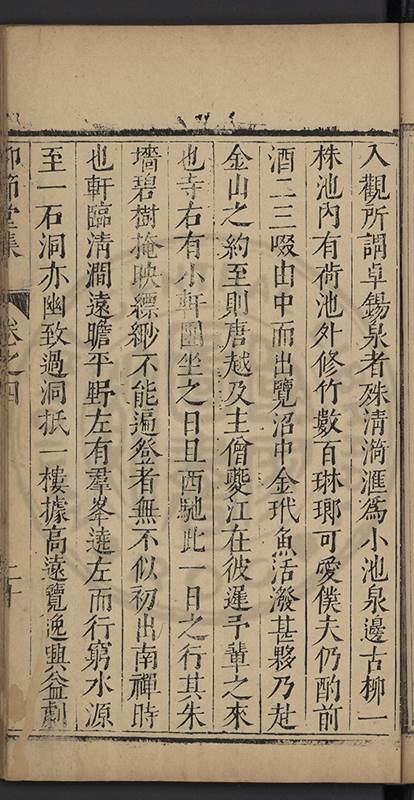 入觀所謂卓錫泉者殊清漪滙爲小池泉邊古柳一
株池內有荷池外修竹數百琳瑯可愛僕夫仍酌前
酒二三啜由中而出覽沼中金玳魚活潑甚夥乃赴
金山之約至則唐越及主僧夔江在彼遲予輩之來
也寺右有小軒圍坐之日且西馳此一日之行其朱
墻碧樹掩映縹緲不能遍登者無不似初出南禪時
也軒臨清澗遠瞻平野左有羣峯遶左而行窮水源
至一石洞亦幽致過洞抵一樓據高遠覽逸興益劇
節堂集 卷之四 二十